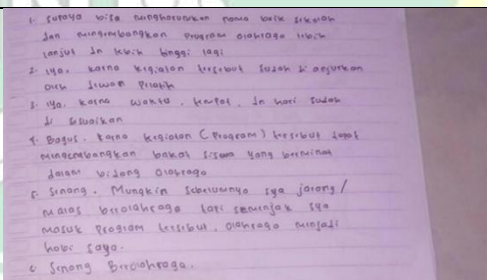 1. Supaya bisa mengharumkan nama baik sekolah
dan mengembangkan program olahraga lebih
lanjut dn lebih tinggi lagi
2. iya, karna kegiatan tersebut sudah di anjurkan
oleh dewan pelatih
3. iya, karna waktu, tempat, dn hari sudah
di sesuaikan
4. Bagus. karna kegiatan (program) tersebut dapat
mengembangkan bakat siswa yang berminat
dalam bidang olahraga
5. Senang. Mungkin sebelumnya sya jarang/
malas berolahraga tapi semenjak sya
masuk program tersebut, olahraga menjadi
hobi saya.
6. Senang Berolahraga.